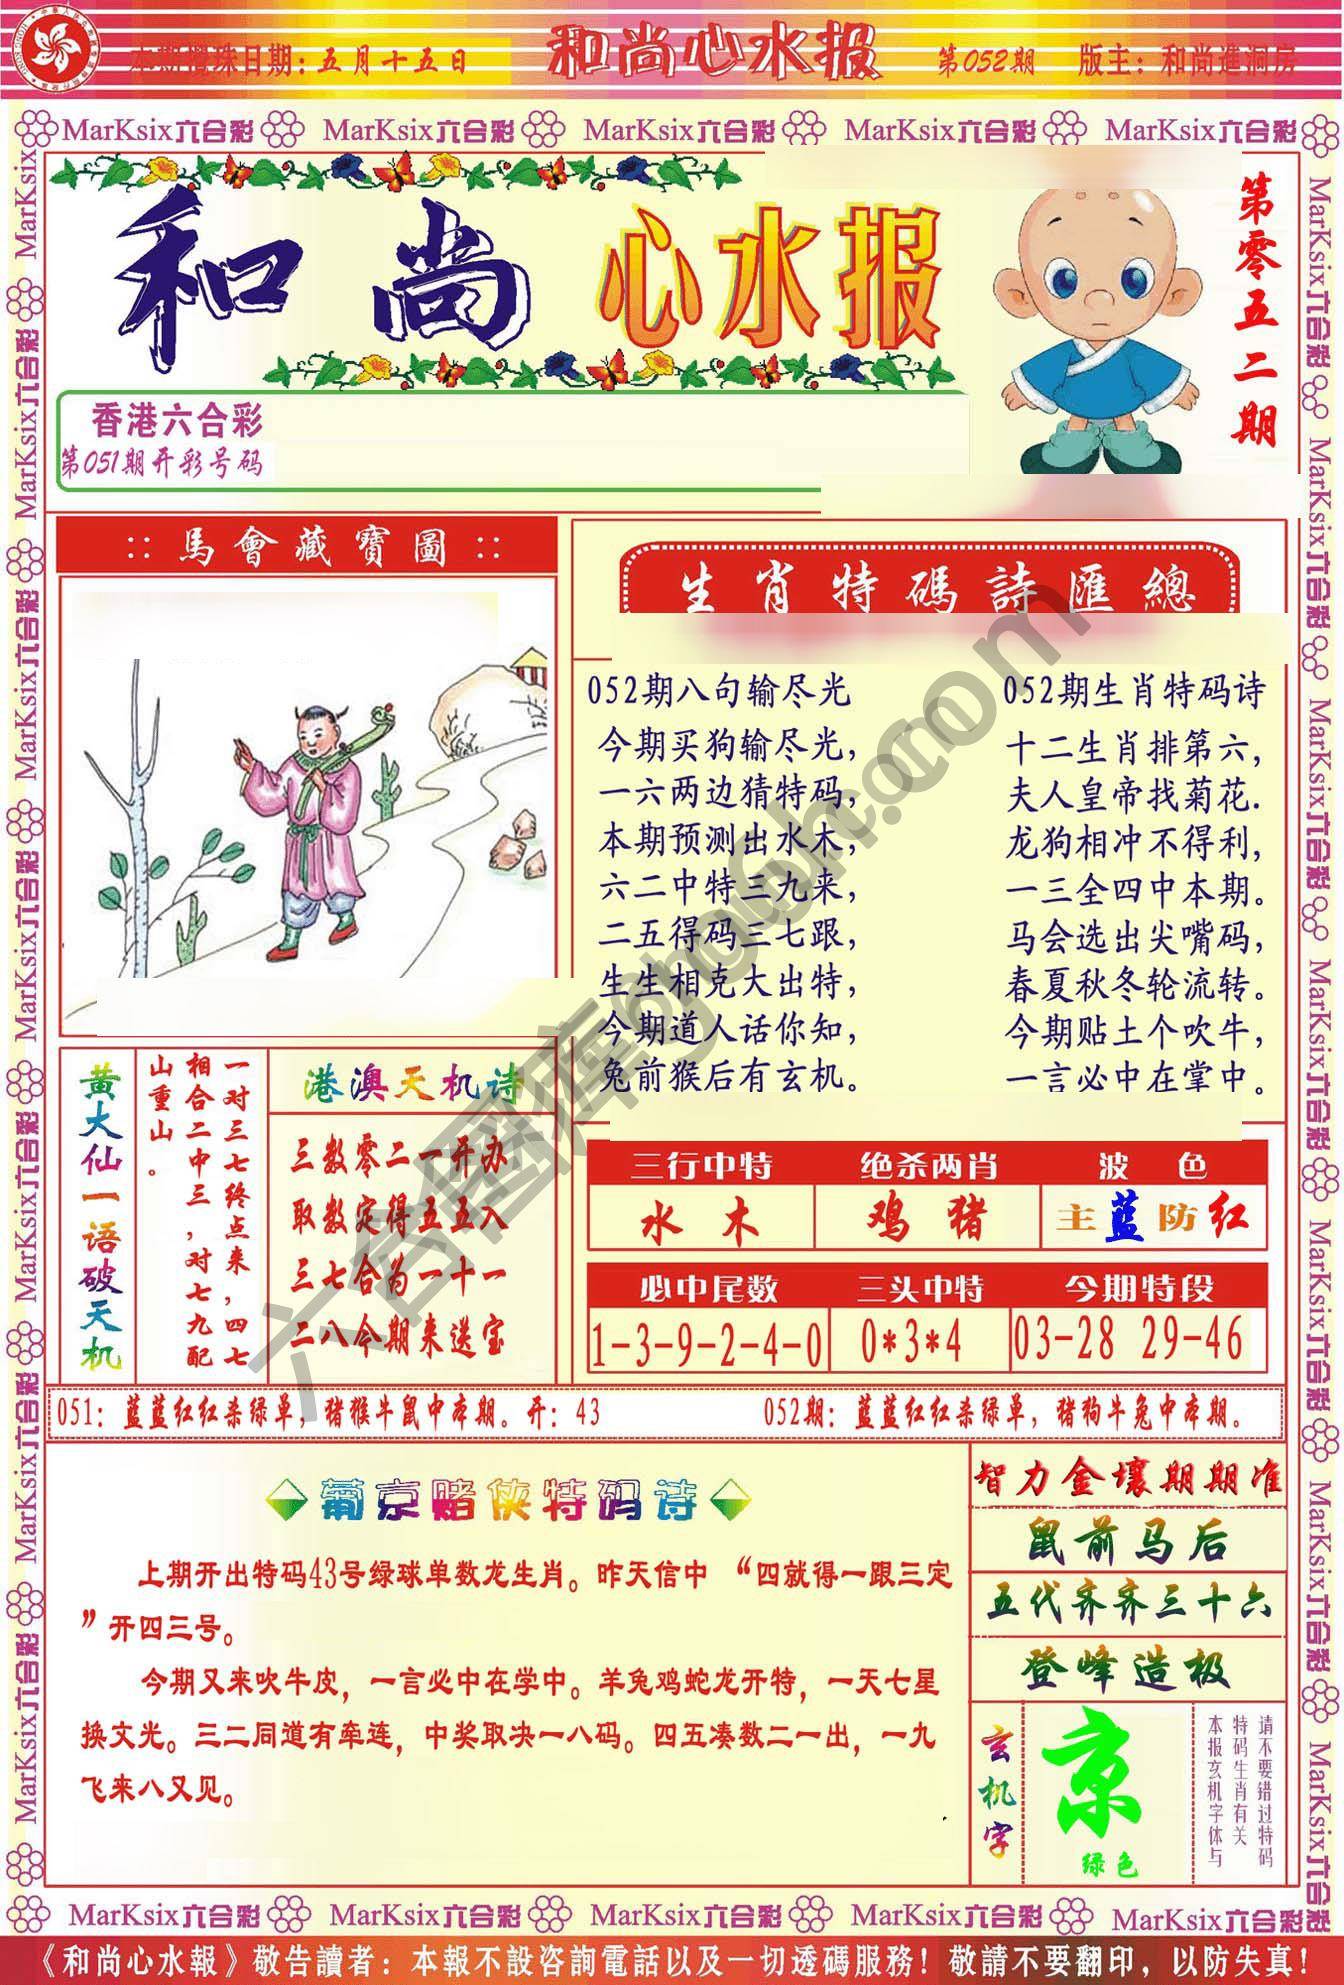 本期攪珠日期：五月十五日
和尚心水报
第052期
版主：和尚進洞房
MarKsix六合彩 MarKsix六合彩 MarKsix六合彩 MarKsix六合彩 MarKsix六合彩
和尚心水报
第零五二期
香港六合彩
第051期开彩号码
::馬會藏寶圖::
生肖特碼詩匯總
052期八句输尽光
今期买狗输尽光，
一六两边猜特码，
本期预测出水木，
六二中特三九来，
二五得码三七跟，
生生相克大出特，
今期道人话你知，
兔前猴后有玄机。
052期生肖特码诗
十二生肖排第六，
夫人皇帝找菊花.
龙狗相冲不得利，
一三全四中本期。
马会选出尖嘴码，
春夏秋冬轮流转。
今期贴土个吹牛，
一言必中在掌中。
黄大仙一语破天机
一对三七终点来，四七
相合二中三，对七九配
山重山。
港澳天机诗
三数零二一开办
取数定得五五入
三七合为一十一
二八今期来送宝
三行中特 绝杀两肖 波色
水木 鸡猪 主蓝防红
必中尾数 三头中特 今期特段
1-3-9-2-4-0 0*3*4 03-28 29-46
051：蓝蓝红红杀绿单，猪猴牛鼠中本期。开：43
052期：蓝蓝红红杀绿单，猪狗牛兔中本期。
葡京赌侠特码诗
上期开出特码43号绿球单数龙生肖。昨天信中“四就得一跟三定
”开四三号。
今期又来吹牛皮，一言必中在学中。羊兔鸡蛇龙开特，一天七星
换文光。三二同道有牵连，中奖取决一八码。四五凑数二一出，一九
飞来八又见。
智力金壤期期准
鼠前马后
五代齐齐三十六
登峰造极
玄机字
京
绿色
请不要错过特码
特码生肖有关
本报玄机字体与
六合图库
MarKsix六合彩 MarKsix六合彩 MarKsix六合彩 MarKsix六合彩 MarKsix六合彩
《和尚心水報》敬告讀者：本報不設咨詢電話以及一切透碼服務！敬請不要翻印，以防失真！